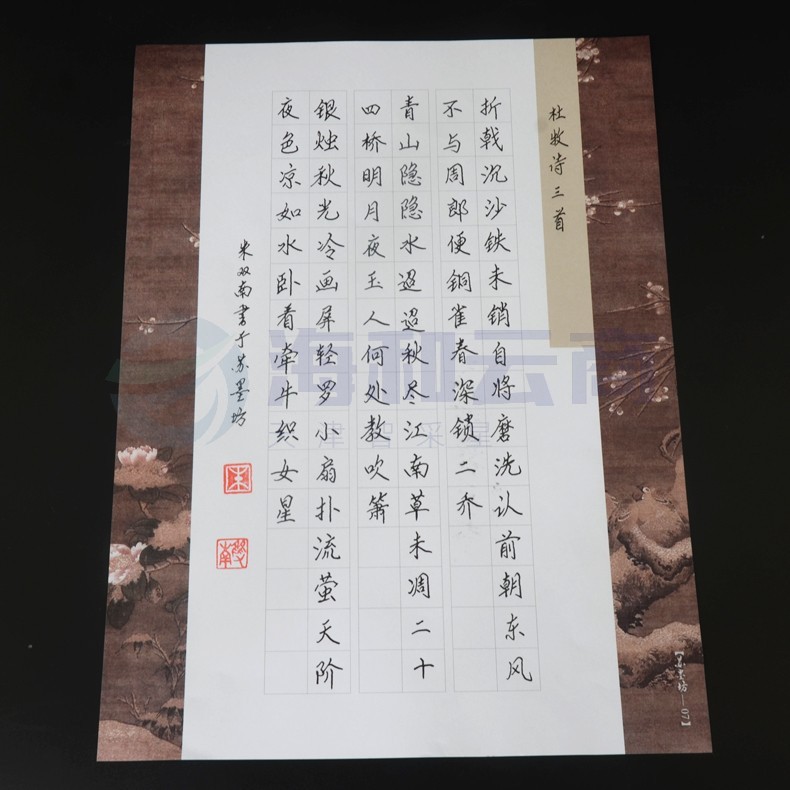 杜牧诗三首
折戟沉沙铁未销自将磨洗认前朝东风
不与周郎便铜雀春深锁二乔
青山隐隐水迢迢秋尽江南草未凋二十
四桥明月夜玉人何处教吹箫
银烛秋光冷画屏轻罗小扇扑流萤天阶
夜色凉如水卧看牵牛织女星
双南書于苏墨坊
【苏墨坊—07】
海和云商